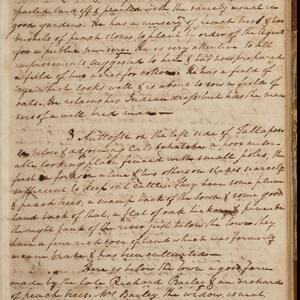 garden well off & planted with the variety usual in
good gardens. He has a nursery of peach trees & two
bushels of peach stones to plant by order of the Agent
for a public nursery. He is very attentive to all
improvements suggested to him & has now prepared
a field of two acres for cotton. He has a field of
which looks well & is about to sow a field of
oats. He retains his Indian dress but has the man
ners of a well bred man —
3 on the left side of Tallapoo
below & adjoining a poor miser
able looking place fenced with small poles, the
first on forks in a line & two others on stakes scarcely
sufficient to keep out cattle. They have some plumb
& peach trees, a swamp back of the town & some good
land back of that, a flat of oak hickory & pine. On
the right bank of the river just below the town, they
have a fine rich cove of land which was formerly
a cane brake & has been cultivated —
Here is below the town a good farm
made by the late Richard Bailey & an orchard
of peach trees. Mrs Bailey the widow, is neat,